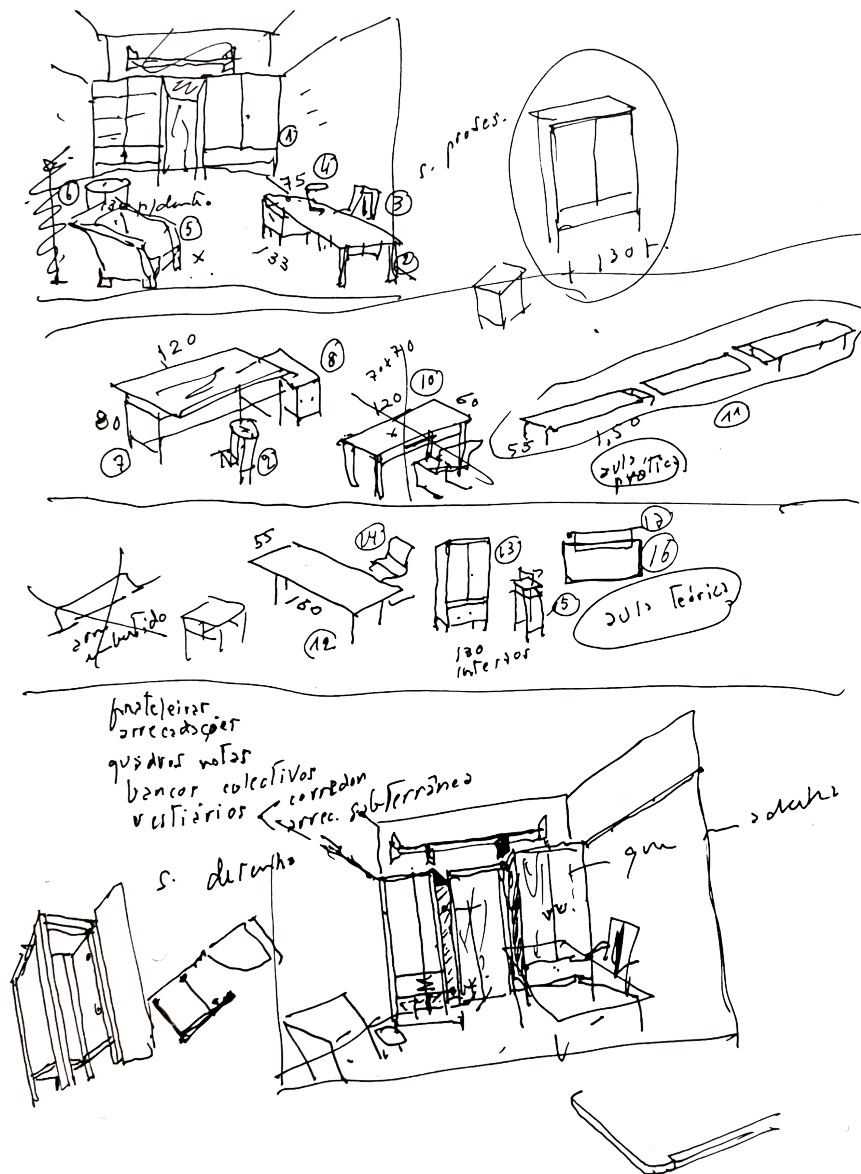 1
4
75
s. profes.
6
3
5
x
133
2
+ 130 +
120
8
70x70
10
120
60
80
x
7
9
55
1,50
11
aula
prática
17
55
14
13
16
160
12
15
aula teórica
130
interior
prateleiras
arrecadações
quadros notas
bancos colectivos
vestiários
corredor
arrec. subterrânea
s. desenho